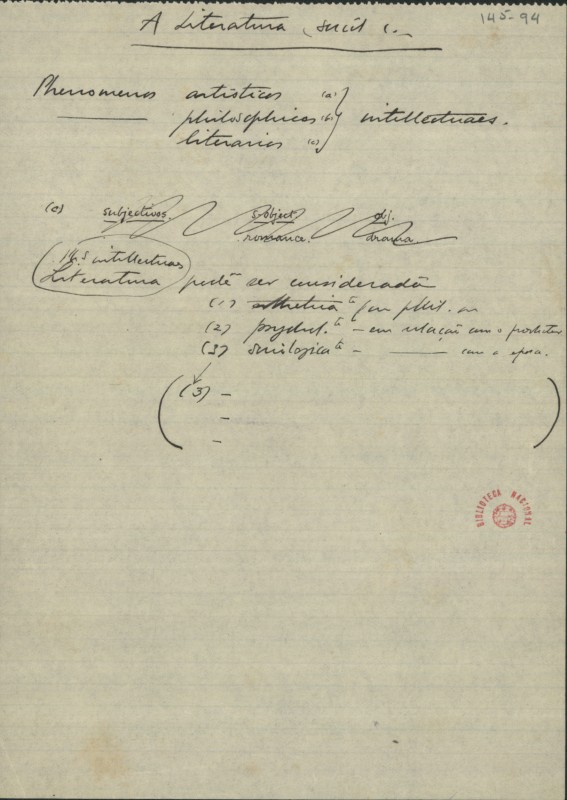 145-94
A Literatura
Phenomenos artisticos (a)
philosophicos (b) intellectuaes.
literarios (c)
(c) subjectivos. object.
romance. drama
Ph.s intellectuaes
Literatura póde ser considerada
(1) esthetica
(2) psychol.te - em relação com o productor
(3) sociologica te - ——— com a epoca.
(3) -
-
-
BIBLIOTECA NACIONAL